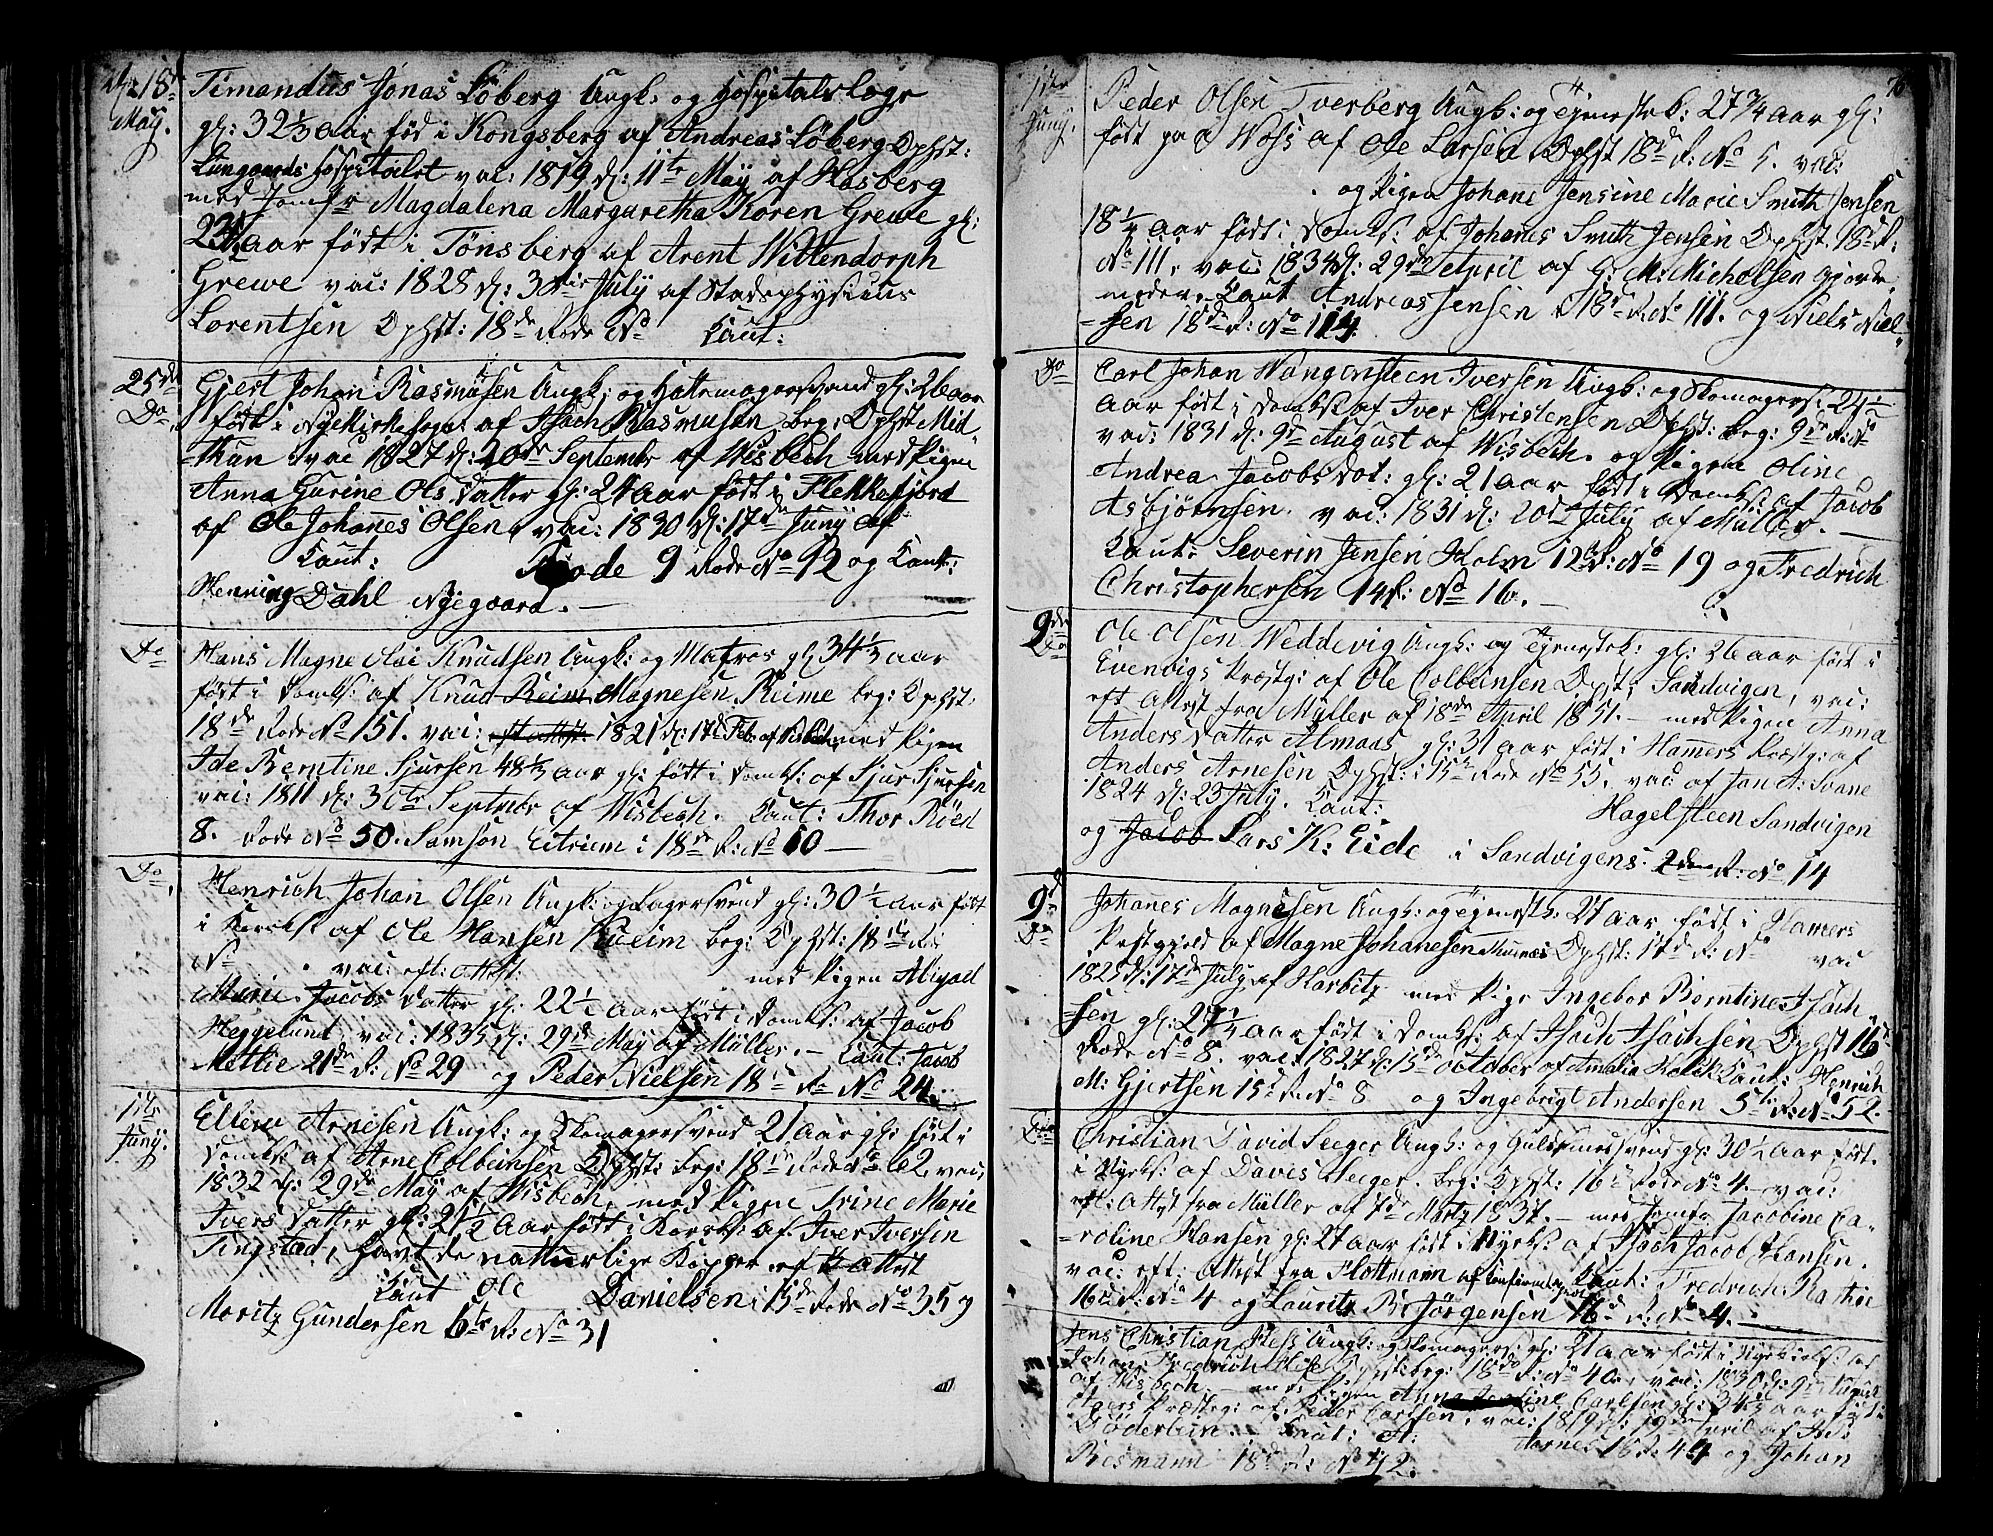 18de May. Timandus Jonas Löberg Ungk: og Hospitals læge
gl: 32 1/3 aar föd i Kongsberg af Andreas Löberg Ophst:
Lungaards Hospitalet vac: 1819 d: 11te May af Hasberg
med Jomfr Magdalena Margaretha Koren Grewe gl:
aar födt i Tönsberg af Arent Wittendorph
Grewe vac: 1828 d: July af Stadsphysicus
Lorentsen Ophst: 18de Rode No Caut:
25de Do. Gjert Johan Rasmusen Ungk: og Hattemagersvend gl: 26 aar
födt i Nyekirkesogn af Isach Rasmusen beg: Ophst Mid-
thun vac 1827 d: 20de September af Wisbech med Pigen
Anna Gurine Ols datter gl: 24 aar födt i Flekkefjord
af Ole Johannes Olsen, vac: 1830 d: 17de Juny af
Caut: Rode 9 Rode No 92 og Caut:
Henning Dahl Nyegaard. —
Do Hans Magne Knudsen Ungk: og Matros gl 34 1/2 aar
födt i Domks: af Knud Reim Magnesen Riime beg: Ophst.
18de Rode No 151. vac: eft Attest: 1821 d: 17de Feb: af Wisbech med Pigen
Ide Berntine Sjursen 48 1/2 aar gl: födt i Domks: af Sjur Sjursen
vac: 1811 d: 30te Septmbr af Wisbech. Caut: Thor Röed
8. Rode No 50. Samson Eitriem i 18de R: No 10 —
Do. Henrich Johan Olsen Ungk: og Bagersvend gl: 30 1/2 aar födt
i Korsks: af Ole Hansen Kueim beg: Ophst: 18de R:
No . vac: eft: Attest: med Pigen Abigael
Marie Jacobs datter gl: 22 1/2 aar födt i Domks: af Jacob
Heggelund, vac: 1835 d: 29de May af Müller. — Caut: Jacob
Meltie 21de R: No 29 og Peder Nielsen 18de R: No 24.
1ste Juny. Ellert Arnesen Ungk: og Skomagersvend 21 aar gl: födt i
Domks: af Arne Colbeinsen Ophst: beg: 18de Rode No 62. vac:
1832 d: 29de May af Wisbech, med Pigen Trine Marie
Ivers datter gl: 21 1/2 aar födt i Korsks: af Iver Iversen
Tingstad, havt de naturlige Kopper eft Attest
Caut Ole Danielsen i 15de Rode No 35 og
Moritz Gundersen 6te R: No 31
1ste Juny. Peder Olsen Tverberg Ungk: og Tjenestek: 27 3/4 aar gl:
födt paa Woss af Ole Larsen Ophst 18de R: No 5. vac:
og Pigen Johane Jensine Marie Smith Jensen
18 1/2 aar födt: Domks: af Johanes Smith Jensen Ophst. 18de R:
No 111, vac: 1834 d: 29de April af G: M: Michelsen
Caut Andreas Jensen 18de R: No 111. og Niels Niel-
-sen 18de R: No 114.
Do Carl Johan Wangensteen Iversen Ungk: og Skomagers: 24 1/2
aar födt i Domks: af Iver Christensen Ophst: beg: 9de R: No
vac: 1831 d: 9de August af Wisbech. og Pigen Oline
Andrea Jacobsdot: gl: 21 aar födt i Domks: af Jacob
Asbjörnsen. vac: 1831 d: 20de July af Müller. —
Caut: Severin Jensen Holm 12te R: No 19 og Fredrich
Christophersen 14 R: No 16. —
9de Do Ole Olsen Weddevig Ungk: og Tjenestek: gl: 26 aar födt i
Evenvigs Præstg: af Ole Colbeinsen Ophst: Sandvigen, vac:
eft Attest fra Müller af 18de April 1851. — med Pigen Anna
Anders datter Almaas gl: 31 aar födt i Hamers Præstg: af
Anders Arnesen Ophst: i 15de Rode No 55. vac: af Jan A: Svane
1824 d: 23 July. Caut: Hagelsteen Sandvigen
og Jacob Lars K: Eide i Sandvigens 2den R: No 14
9de Do Johanes Magnesen Ungk: og Tjenestk: 27 aar födt i Hamers
Prestegjeld af Magne Johanesen Ophst: 17de R: No vac
1825 d: 17de July af Harbitz med Pige Ingebor Berntine Isach-
-sen gl: 27 1/2 aar födt i Domks: af Isach Isachsen Ophst 16de
Rode No 8. vac: 1827 d: 15de October af Amalia Caut: Henrich
M: Gjertsen 15de R: No 8 og Ingebrigt Andersen 5te R: No 52.
Do Christian David Seeger Ungk: og Guldsmedsvend gl: 30 1/2 aar födt.
i Nyks: af Daves Seeger. beg: Ophst: 16de Rode No 4 — vac:
eft: Attest fra Müller af 7de Martz 1837. — med Jomfr Jacobine Ca-
-roline Hansen gl: 27 aar födt i Nyks: af Isach Jacob Hansen.
vac: eft: Attest fra Flottmann af Caut: Fredrich Rathie
16de R: No 4 og Lauritz B: Jörgensen 16de R: No 4. —
Jens Christian Hess Ungk: og Skomagers: gl: 21 aar födt i Nyekirks: af
Johan Fredrich Hess Ophst: beg: 18de R: No 40. vac: 1830 d: 9de August
af Wisbech, — med Pigen Anna Carlsen gl: 34 aar födt i
Præsteg: af Peder Carlsen, vac: 1819 d: 19de April af Pr:
Caut: A: Aarnes 18 R: 44 og Johan
Bismann 18de R: No 112.